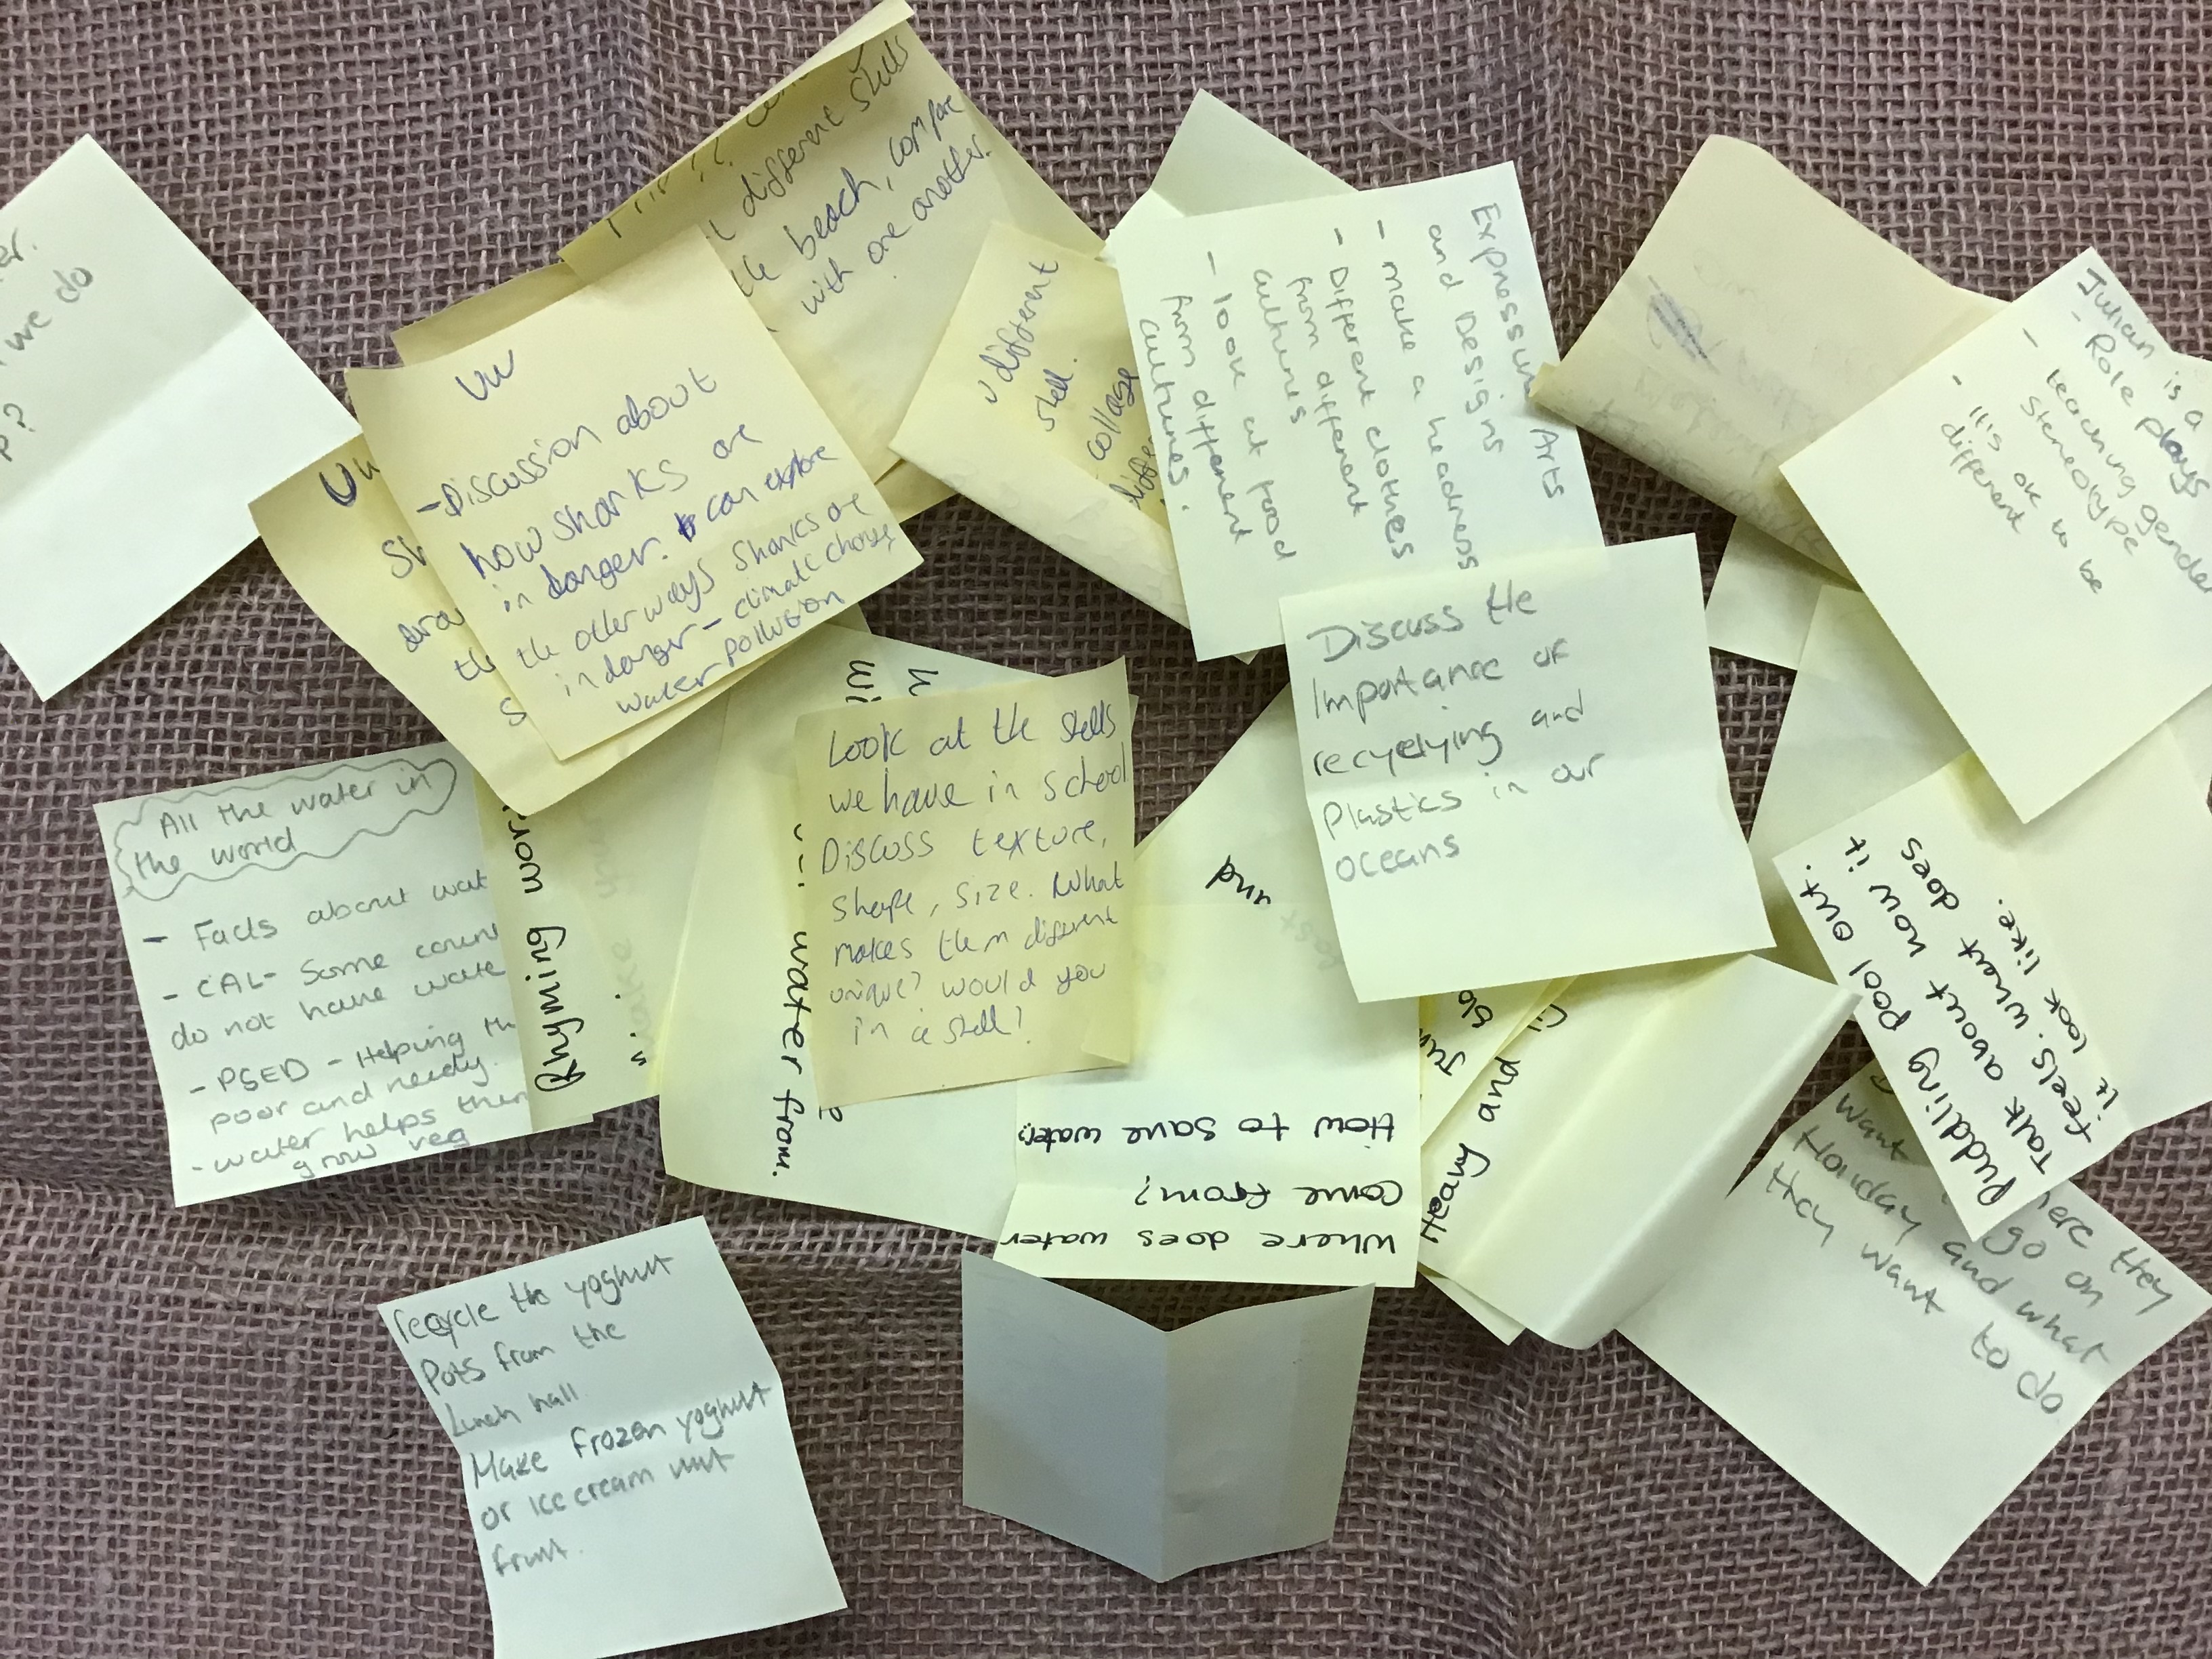 er.
we do
P?
different shells
the beach, compare
with one another.
UW
- Discussion about
how sharks are
in danger. can explore
the other ways sharks are
in danger - climatic change,
water pollution
UW
Sh
arou
the
S
different
shell.
- collage
differe
Expressive Arts
and Designs
- make a headdress
- Different clothes
from different
cultures
- look at food
from different
cultures.
Julian is a
- Role plays
- teaching gender
stereotype
- it's ok to be
different
Discuss the
importance of
recyclying and
Plastics in our
oceans
All the water in
the world
- Facts about wat
- CAL- Some count
do not have wate
- PSED - Helping th
poor and needy.
- water helps them
grow veg
Rhyming word
water from.
Look at the shells
we have in school
Discuss texture,
shape, size. What
makes them different
unique? would you
in a shell?
und
Where does water
come from?
How to save water.
Heavy and
Puddling pool out.
Talk about how it
feels. what does
it look like.
want
here they
go on
Holiday and what
they want to do
recycle the yoghurt
Pots from the
Lunch hall.
Make frozen yoghurt
or ice cream wit
fruit.